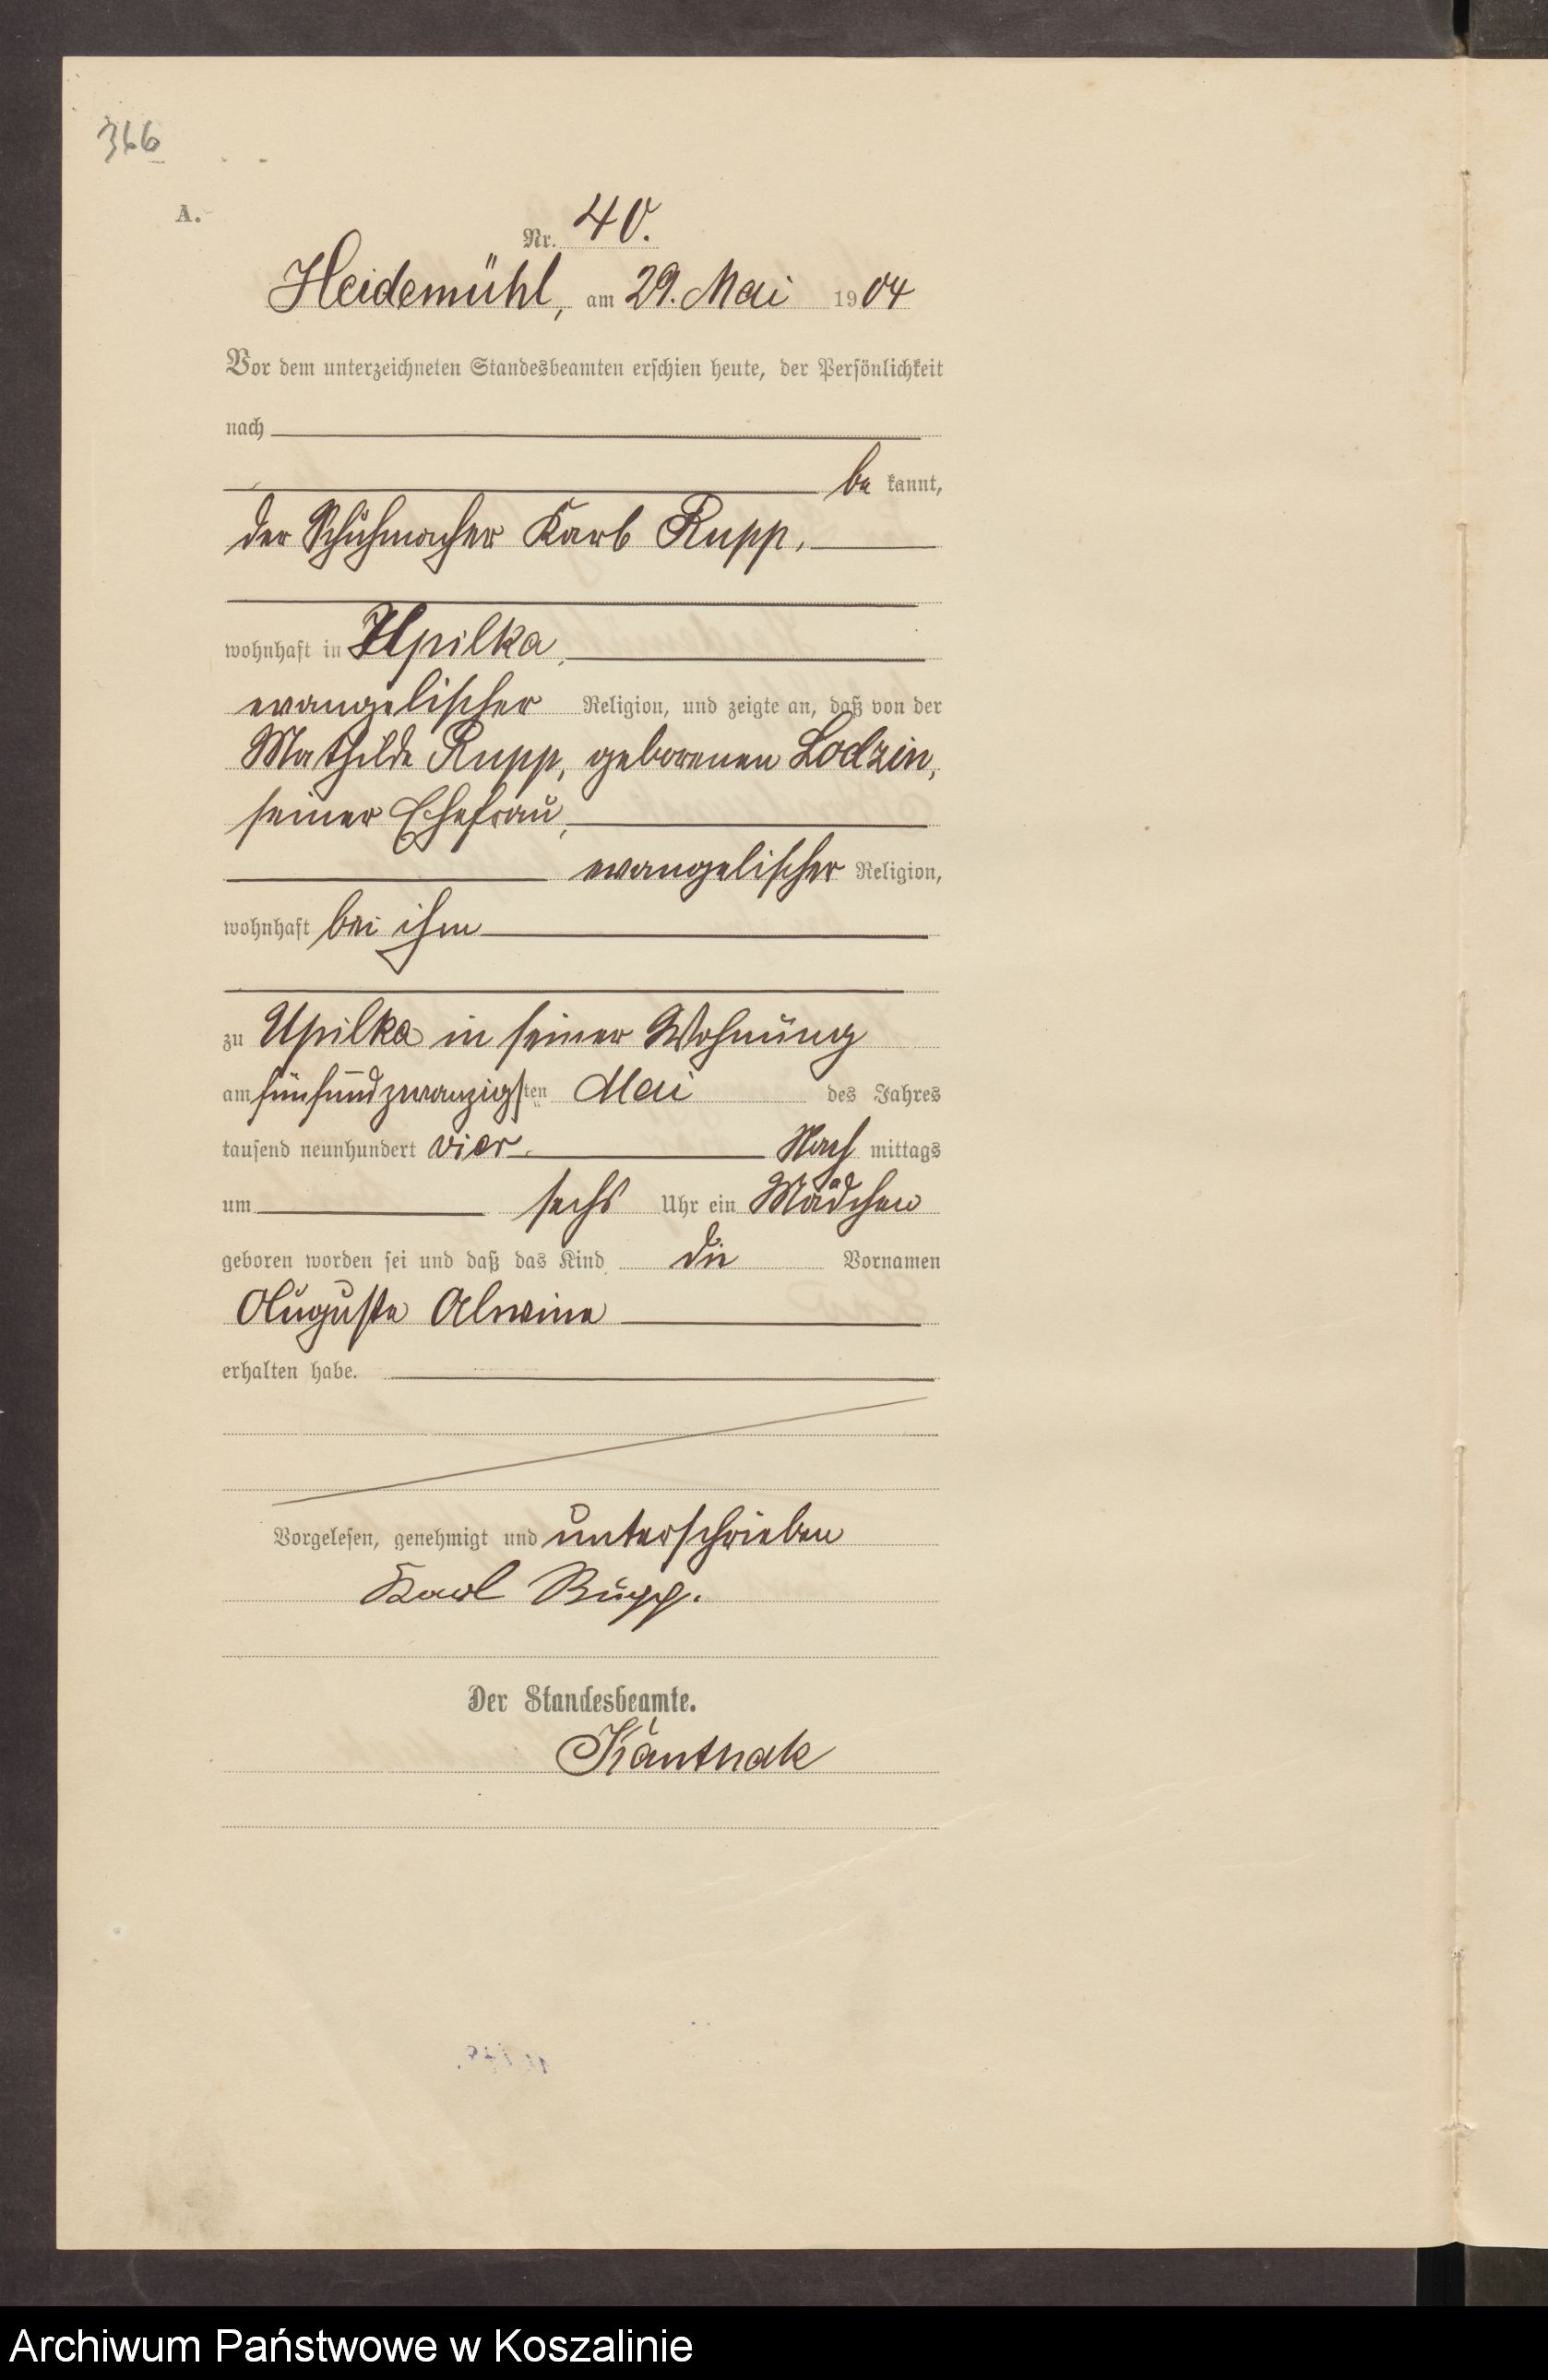 366
A.
Nr. 40.
Heidemühl, am 29. Mai 1904
Vor dem unterzeichneten Standesbeamten erschien heute, der Persönlichkeit
nach
be kannt,
der Schuhmacher Karl Rupp,
wohnhaft in Upilka,
evangelischer Religion, und zeigte an, daß von der
Mathilde Rupp, geborenen Lodzin,
seiner Ehefrau,
evangelischer Religion,
wohnhaft bei ihm
zu Upilka in seiner Wohnung
am fünfundzwanzigsten Mai des Jahres
tausend neunhundert vier Nach mittags
um sechs Uhr ein Mädchen
geboren worden sei und daß das Kind die Vornamen
Auguste Alwine
erhalten habe.
Vorgelesen, genehmigt und unterschrieben
Karl Rupp.
Der Standesbeamte.
Archiwum Państwowe w Koszalinie